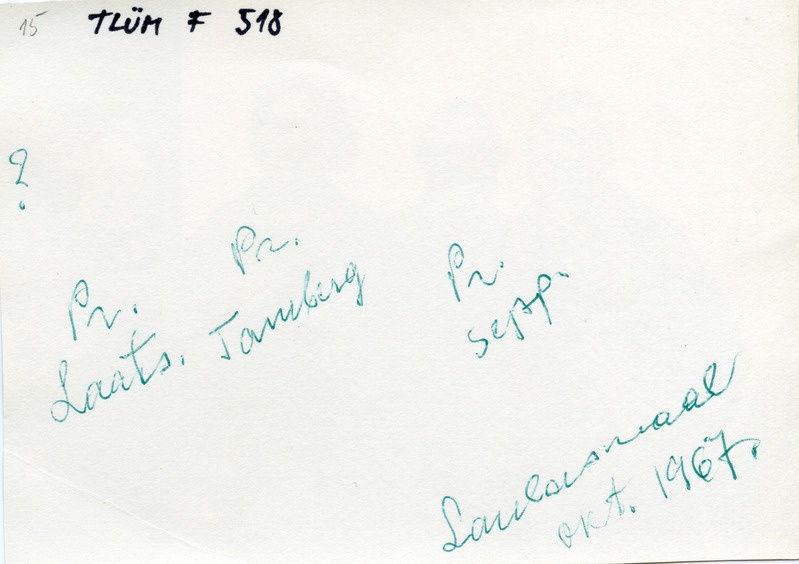 15 TLÜM F 518
?
Pr. Laats.
Pr. Tamberg
Pr. Sepp.
Laulasmaal
okt. 1967.